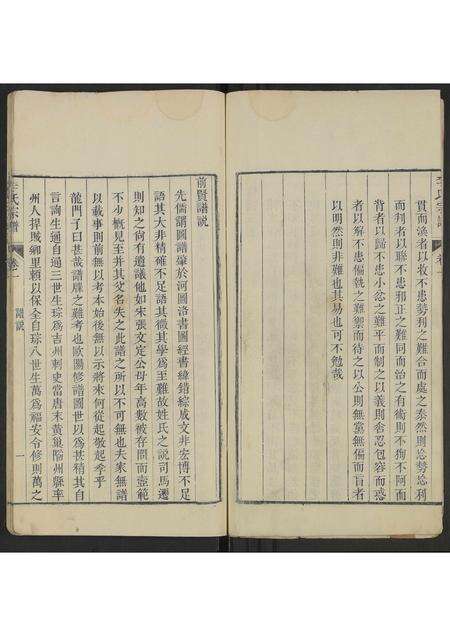 貫而渙者以收不患勢利之難合而處之泰然則忘勢忘利
而判者以聯不患邪正之難同而治之有術則不狥不阿而
背者以歸不患小忿之難平而制之以義則舍忍包容而惑
者以解不患偏執之難禦而待之以公則無黨無偏而盲者
以明然則非難也其易也可不勉哉
李氏宗譜
卷一
前賢譜說
先儒謂圖譜肇於河圖洛書圖經書緯錯綜成文非宏博不足
語其大非精確不足語其微其學爲至難故姓氏之說司馬遷
則知之尚有遺議他如宋張文定公母年高數被存問而壼範
不少概見至并其父名失之此譜之所以不可無也夫來無譜
以載事則前無以考本始後無以示將來何從起敬起孝乎
龍門子曰甚哉譜牒之難考也歐陽修譜圖世以爲甚精其自
言詢生通自通三世生琮爲吉州刺史當唐末黃巢陷州縣率
州人捍賊鄉里賴以保全自琮八世生萬爲福安令修則萬之
李氏宗譜
卷一
譜說
一